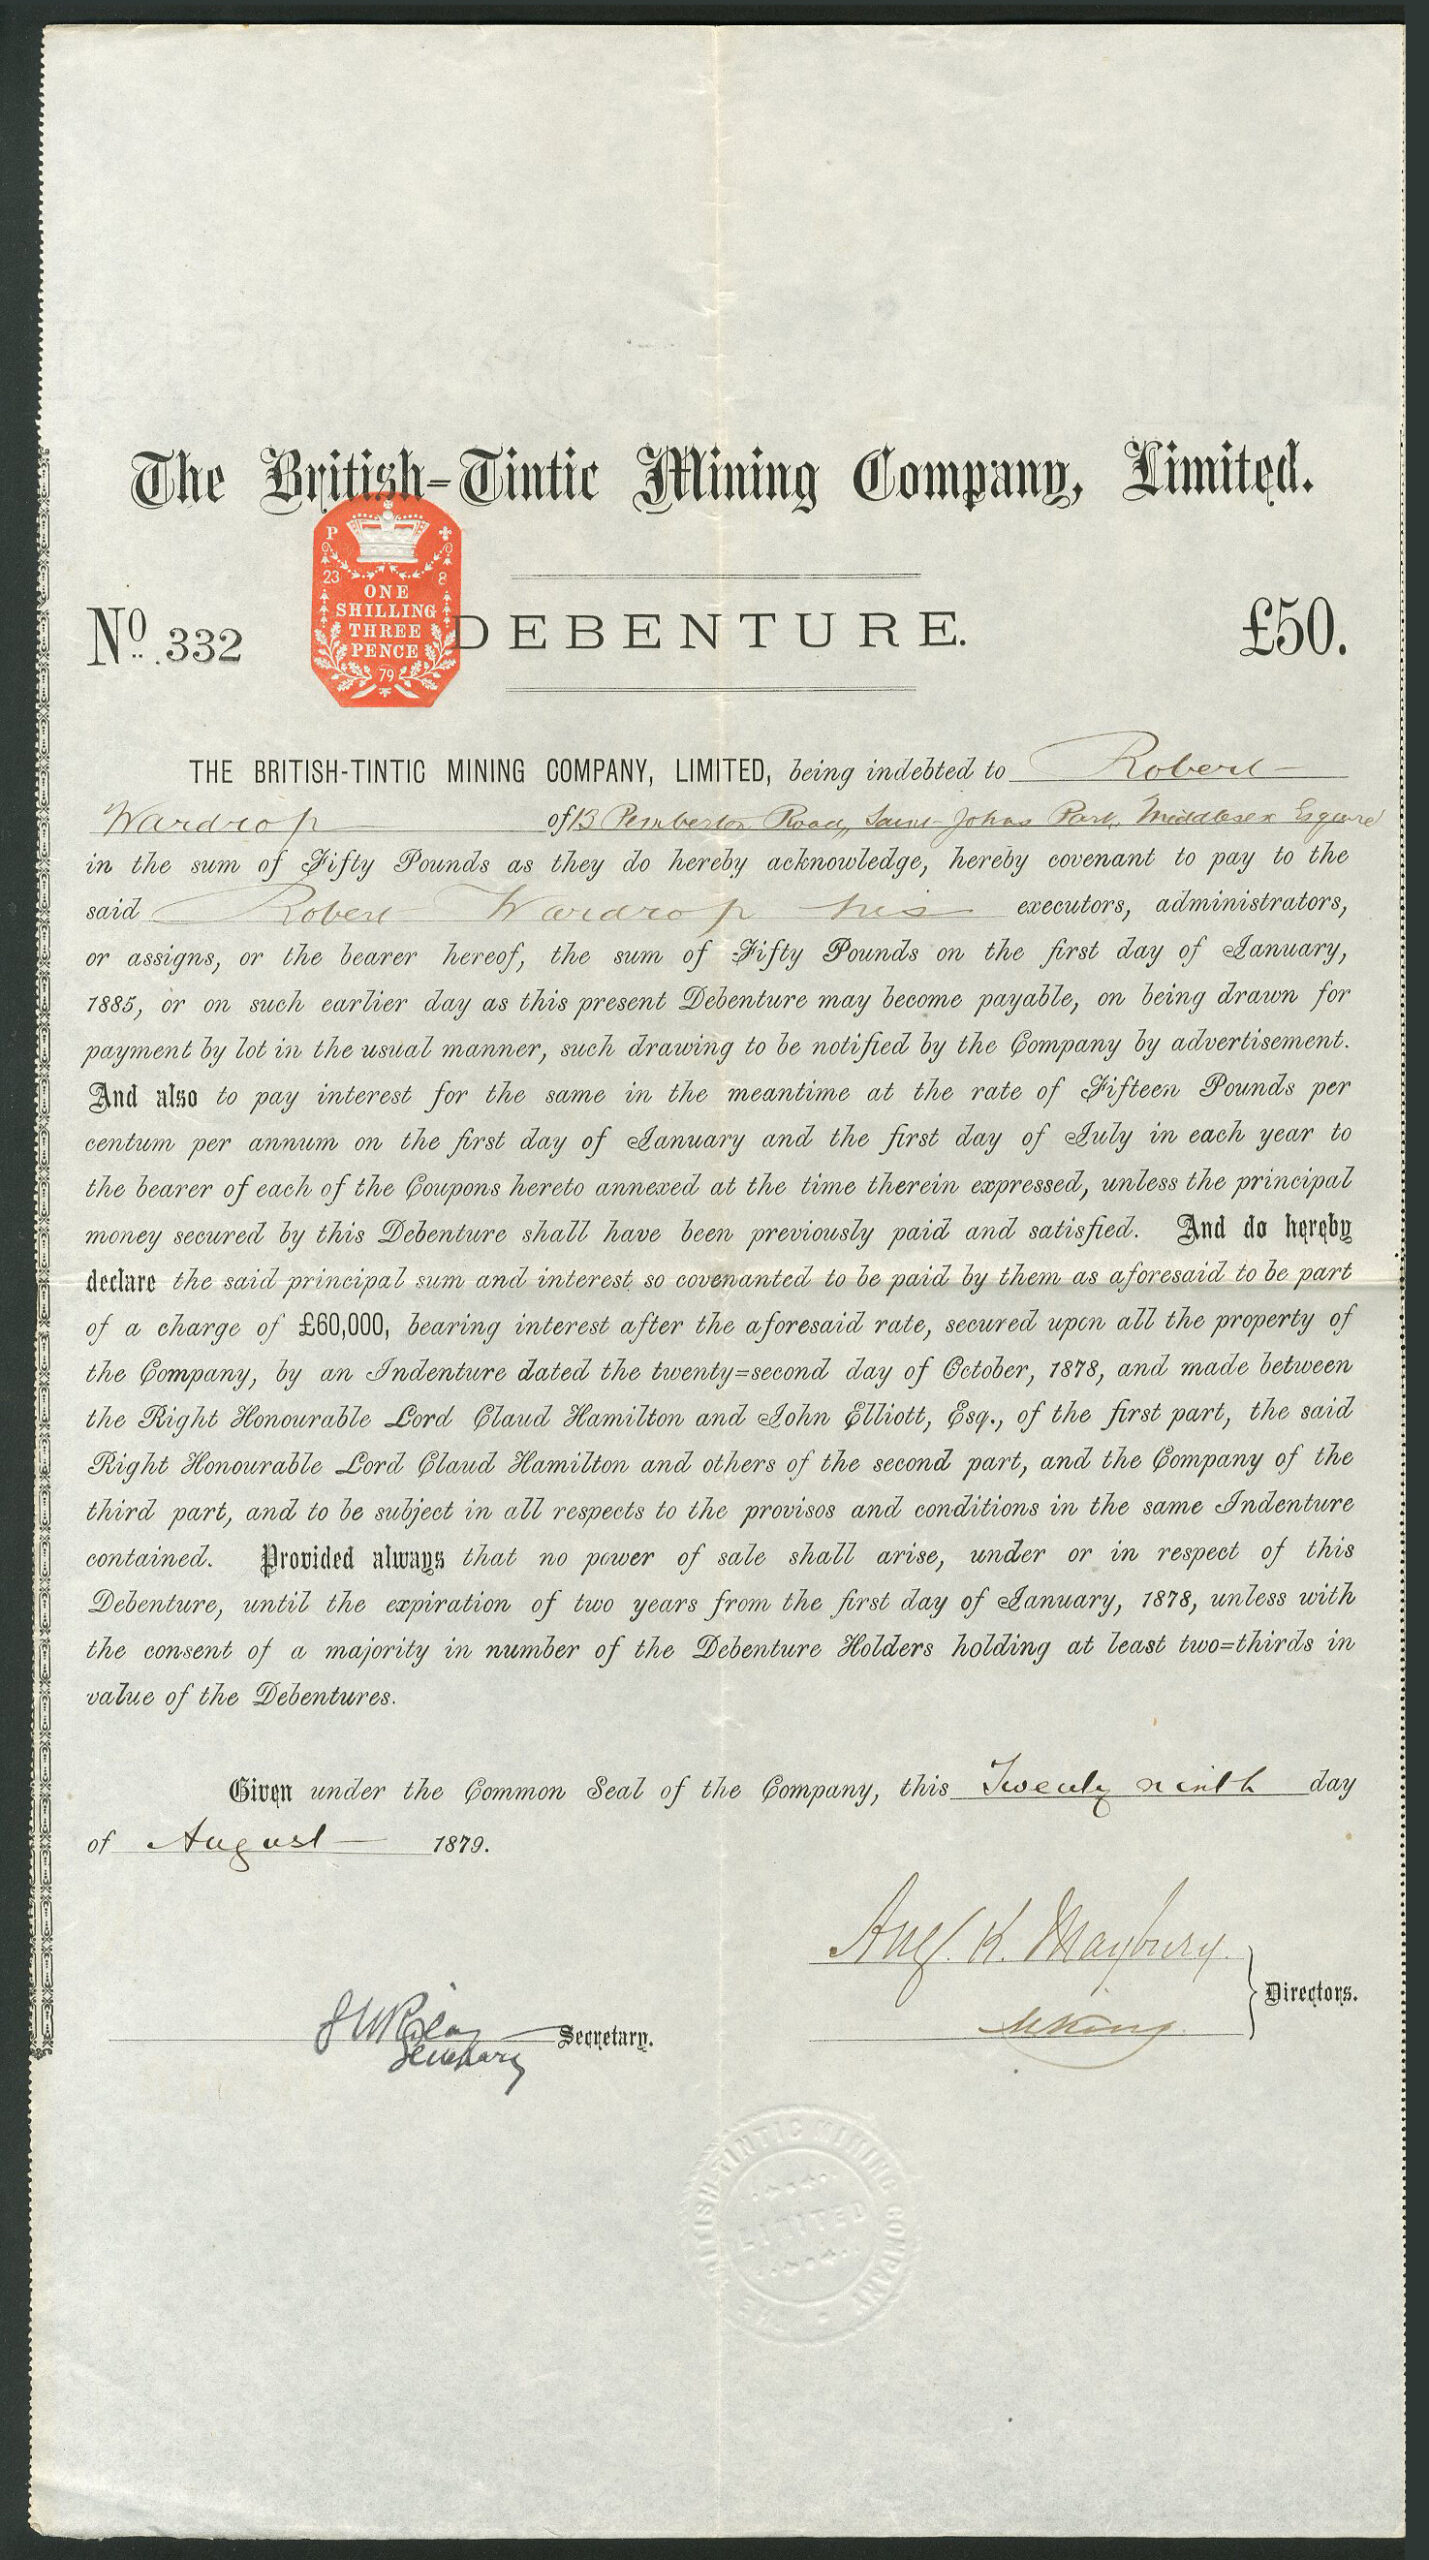 The British-Tintic Mining Company, Limited.
P
23 8
ONE
SHILLING
THREE
PENCE
79
No. 332 DEBENTURE. £50.
THE BRITISH-TINTIC MINING COMPANY, LIMITED, being indebted to Robert
Wardrop of 13 Pemberton Road, Saint Johns Park, Middlesex Esquire
in the sum of Fifty Pounds as they do hereby acknowledge, hereby covenant to pay to the
said Robert Wardrop his executors, administrators,
or assigns, or the bearer hereof, the sum of Fifty Pounds on the first day of January,
1885, or on such earlier day as this present Debenture may become payable, on being drawn for
payment by lot in the usual manner, such drawing to be notified by the Company by advertisement.
And also to pay interest for the same in the meantime at the rate of Fifteen Pounds per
centum per annum on the first day of January and the first day of July in each year to
the bearer of each of the Coupons hereto annexed at the time therein expressed, unless the principal
money secured by this Debenture shall have been previously paid and satisfied. And do hereby
declare the said principal sum and interest so covenanted to be paid by them as aforesaid to be part
of a charge of £60,000, bearing interest after the aforesaid rate, secured upon all the property of
the Company, by an Indenture dated the twenty=second day of October, 1878, and made between
the Right Honourable Lord Claud Hamilton and John Elliott, Esq., of the first part, the said
Right Honourable Lord Claud Hamilton and others of the second part, and the Company of the
third part, and to be subject in all respects to the provisos and conditions in the same Indenture
contained. Provided always that no power of sale shall arise, under or in respect of this
Debenture, until the expiration of two years from the first day of January, 1878, unless with
the consent of a majority in number of the Debenture Holders holding at least two=thirds in
value of the Debentures.
Given under the Common Seal of the Company, this Twenty ninth day
of August 1879.
K. Maybury.
Directors.
King
Secretary.
Secretary
BRITISH-TINTIC MINING COMPANY
LIMITED